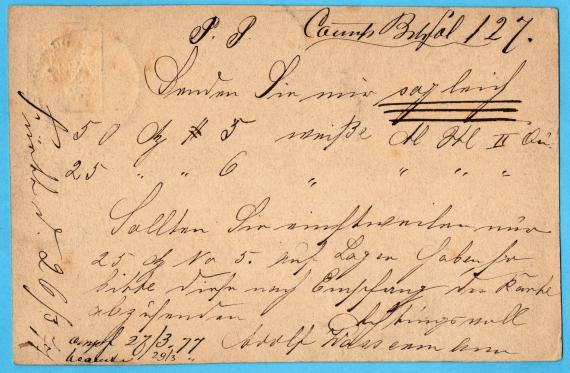 P. P.
Senden Sie mir sogleich
50 # 5 weiße II Qu.
25 " " 6 " " " "
Sollten Sie einstweilen nur
25 No 5. auf Lager haben so
bitte diese nach Empfang der Karte
abzusenden
Achtungsvoll
Adolf Wassermann
26/3. 77
empf 27/3. 77
29/3 "
127.